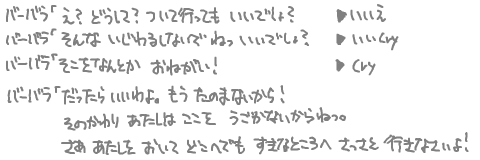 バーバラ「え？どうして？ついて行っても いいでしょ？ ▶いいえ
バーバラ「そんな いじわるしないで ねっ いいでしょ？ ▶いいcry
バーバラ「そこをなんとか おねがい！ ▶cry
バーバラ「だったら いいわよ。もう たのまないから！
そのかわり あたしは ここを うごかないからねっ。
さあ あたしを おいて どこへでも すきなところへ さっさと 行きなさいよ！